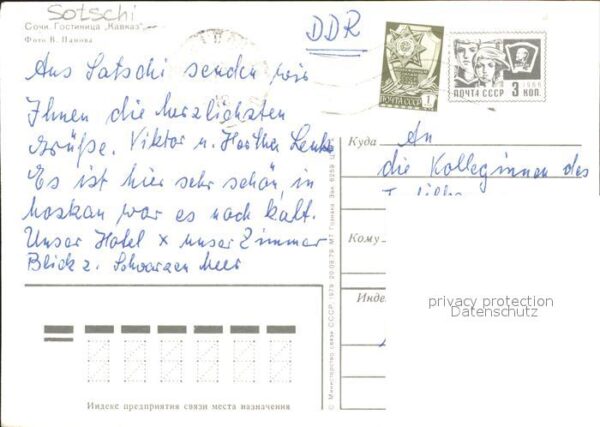 Sotschi
Сочи. Гостиница „Кавказ“
Фото В. Панова
DDR
Aus Satschi senden wir
Ihnen die herzlichsten
Grüße. Viktor u. Hertha
Es ist hier sehr schön, in
Moskau war es noch kalt.
Unser Hotel x unser Zimmer
Blick z. Schwarzen Meer
ПОЧТА СССР 1
1966
ПОЧТА СССР 3 КОП.
Куда An
die Kolleginnen des
Кому
Инде
privacy protection
Datenschutz
© Министерство связи СССР. 1979
Индекс предприятия связи места назначения